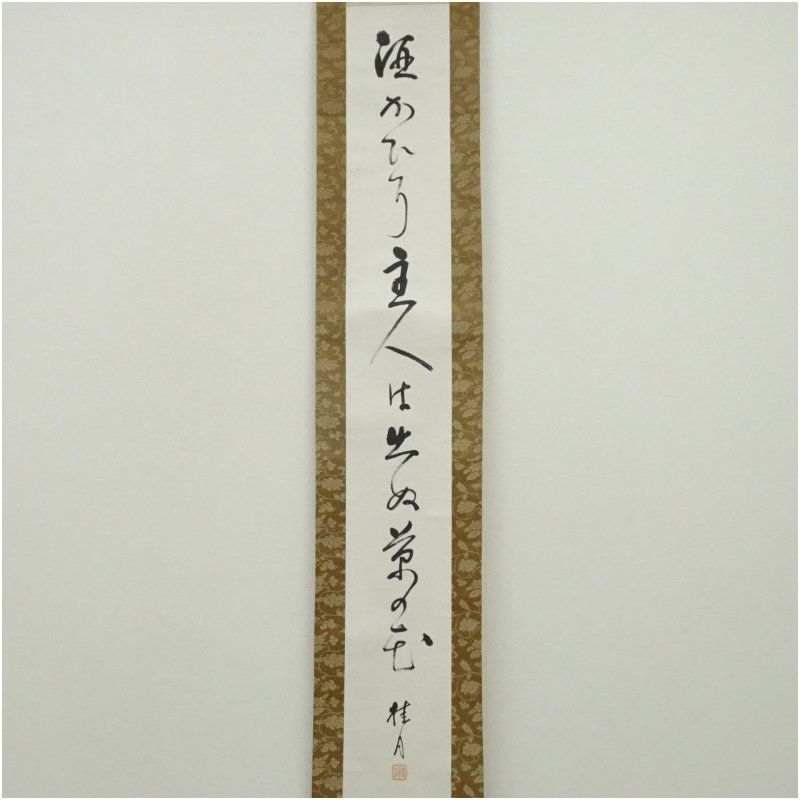 酒かひに主人は出ぬ菊の花
桂月